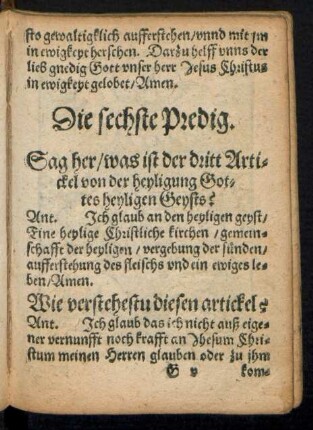 sto gewaltigklich aufferstehen/vnnd mit jm
in ewigkeyt herschen. Darzu helff vnns der
lieb gnedig Gott vnser herr Jesus Christus
in ewigkeyt gelobet/Amen.
Die sechste Predig.
Sag her/was ist der dritt Arti-
ckel von der heyligung Got-
tes heyligen Geysts?
Ant. Jch glaub an den heyligen geyst/
Eine heylige Christliche kirchen/gemein-
schafft der heyligen/vergebung der sünden/
aufferstehung des fleischs vnd ein ewiges le-
ben/Amen.
Wie verstehestu diesen artickel?
Ant. Jch glaub das ich nicht auß eige-
ner vernunfft noch krafft an Jhesum Chri-
stum meinen Herren glauben oder zu jhm
G v kom-